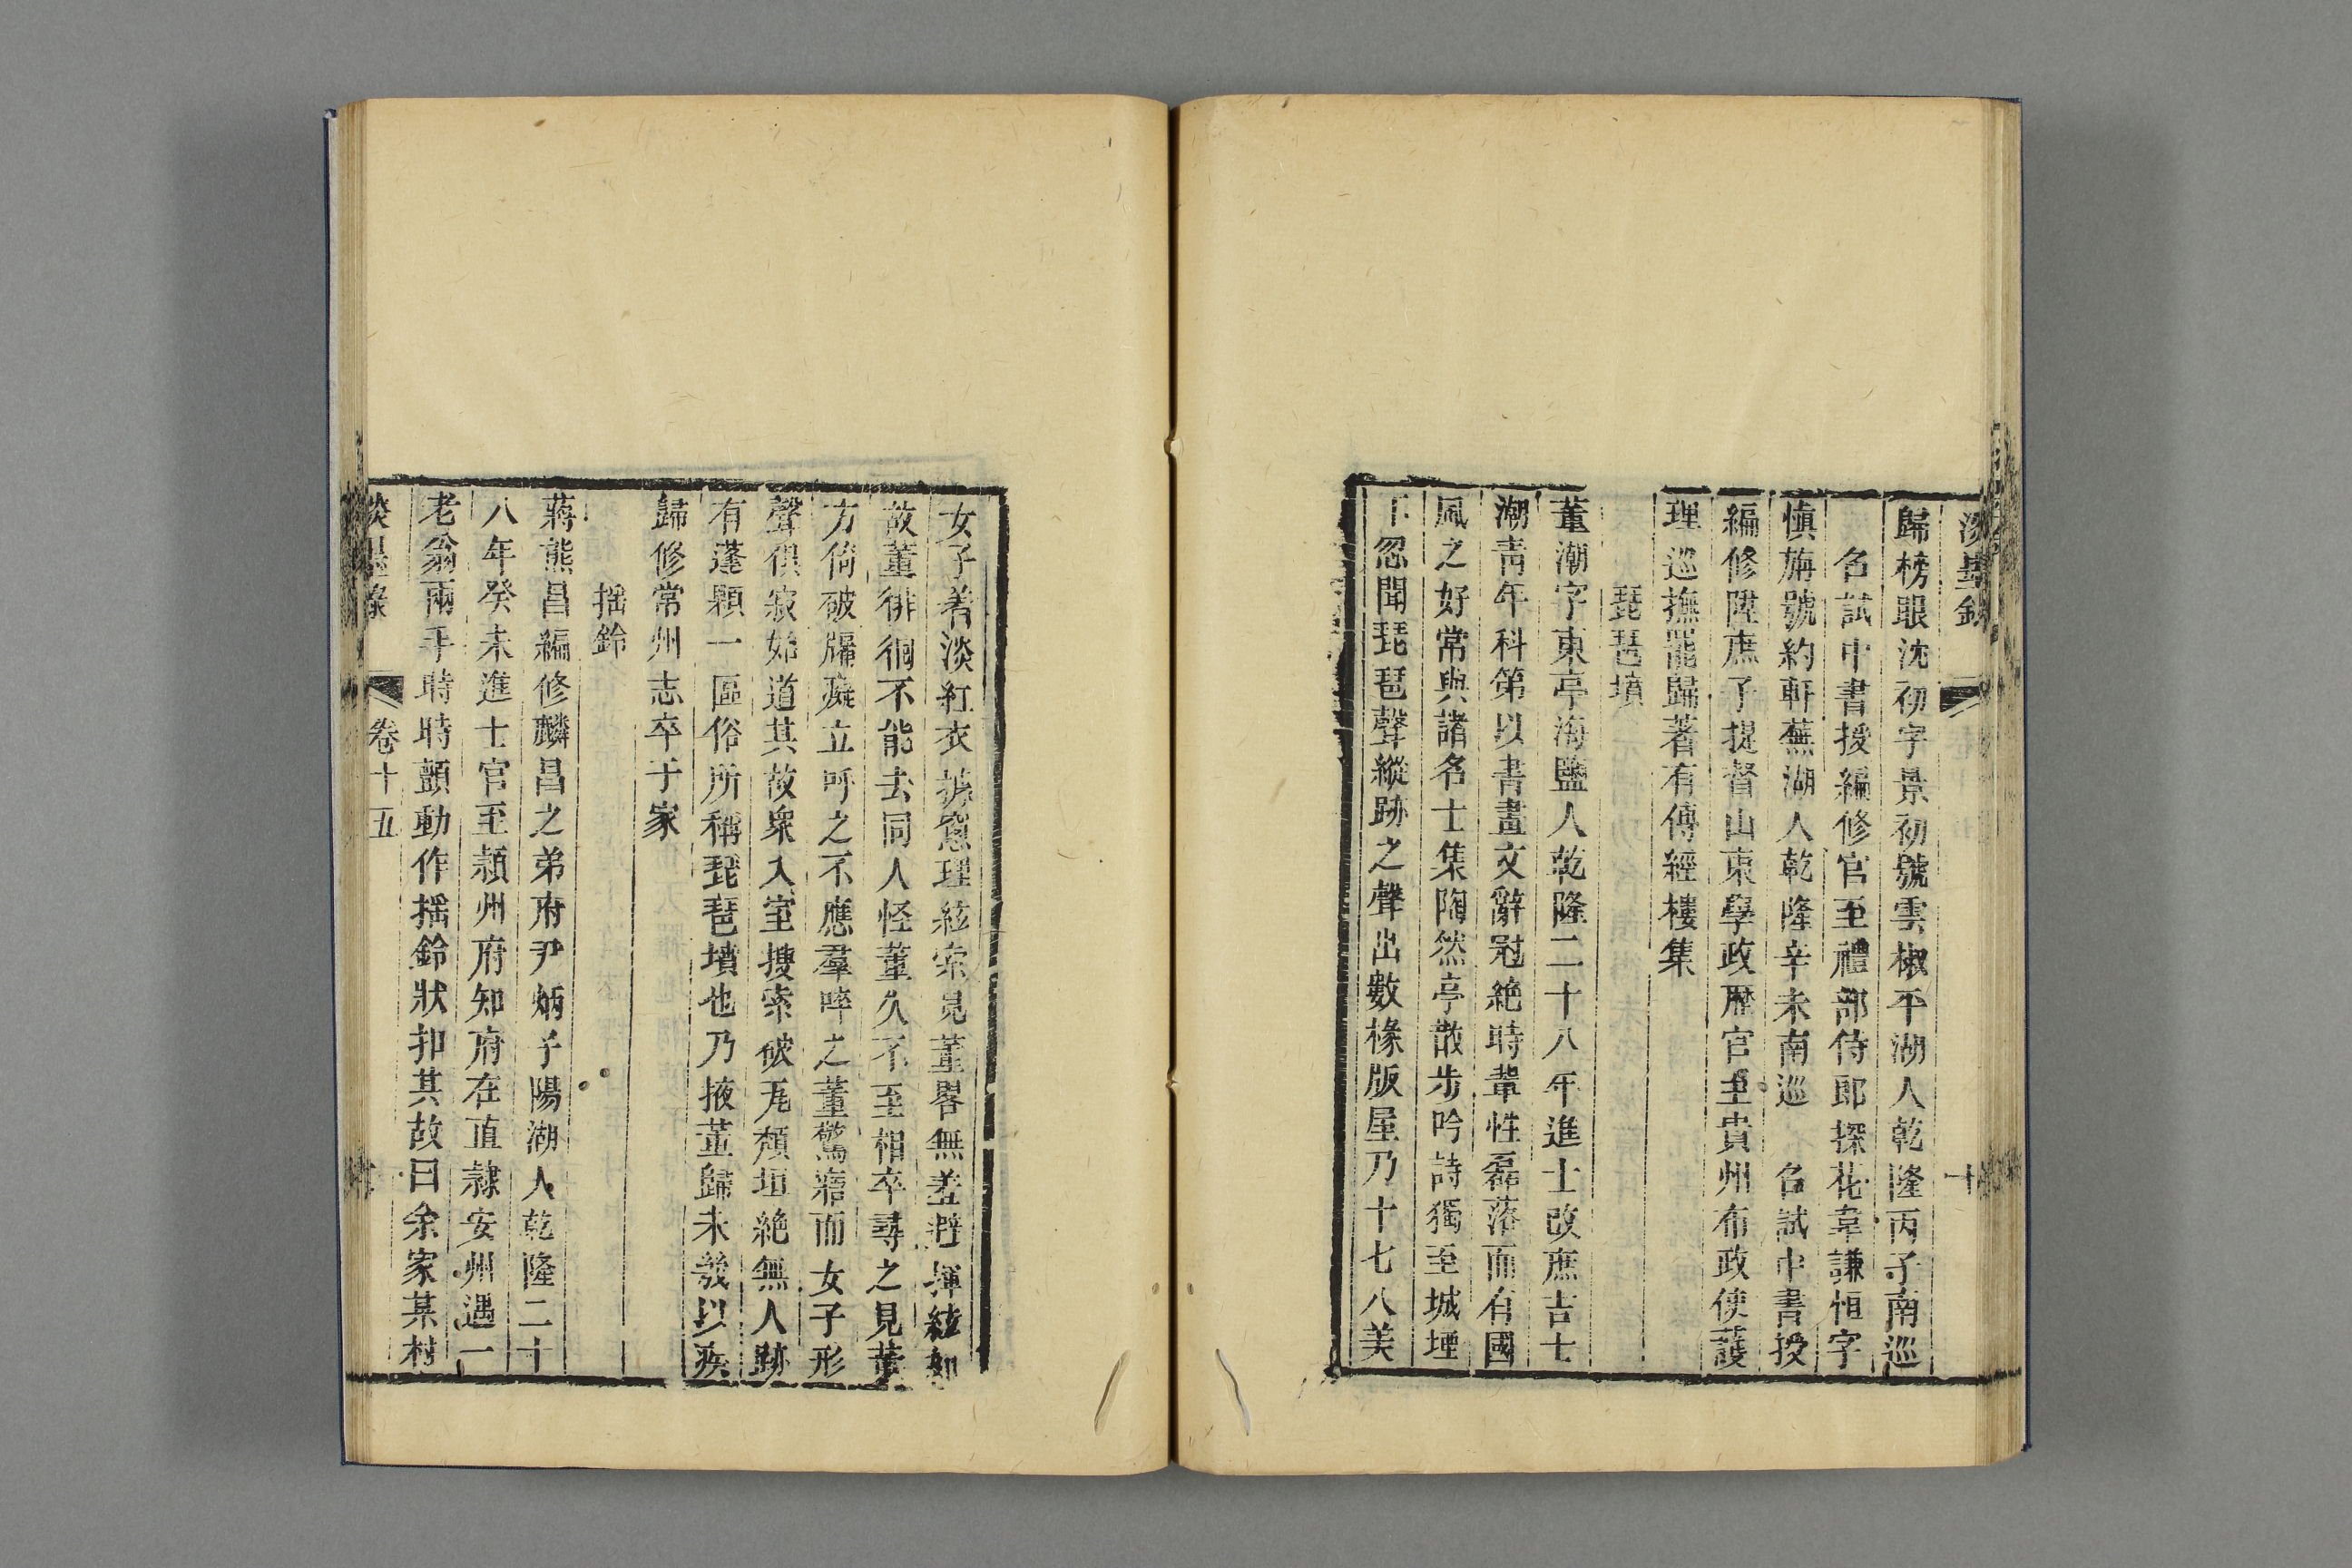 淡墨錄
十
歸榜眼沈初字景初號雲椒平湖人乾隆丙子南巡
召試中書授編修官至禮部侍郎探花韋謙恒字
慎旃號約軒蕪湖人乾隆辛未南巡 召試中書授
編修陞庶子提督山東學政歷官至貴州布政使護
理巡撫罷歸著有傳經樓集
琵琶墳
董潮字東亭海鹽人乾隆二十八年進士改庶吉士
潮青年科第以書畫文辭冠絶時輩性磊落而有國
風之好常與諸名士集陶然亭散步吟詩獨至城堙
下忽聞琵琶聲縱跡之聲出數椽版屋乃十七八美
女子着淡紅衣據窻理絃索見董畧無羞避揮絃如
故董徘徊不能去同人怪董久不至相卒尋之見董
方倚破牖癡立呼之不應羣啐之董驚寤而女子形
聲俱寂始道其故衆入室搜索破𤬪頹垣絶無人跡
有蓬顆一區俗所稱琵琶墳也乃掖董歸未幾以疾
歸修常州志卒于家
摇鈴
蔣熊昌編修麟昌之弟府尹炳子陽湖人乾隆二十
八年癸未進士官至潁州府知府在直隸安州遇一
老翁兩手時時顫動作摇鈴狀扣其故曰余家某村
淡墨錄 卷十五